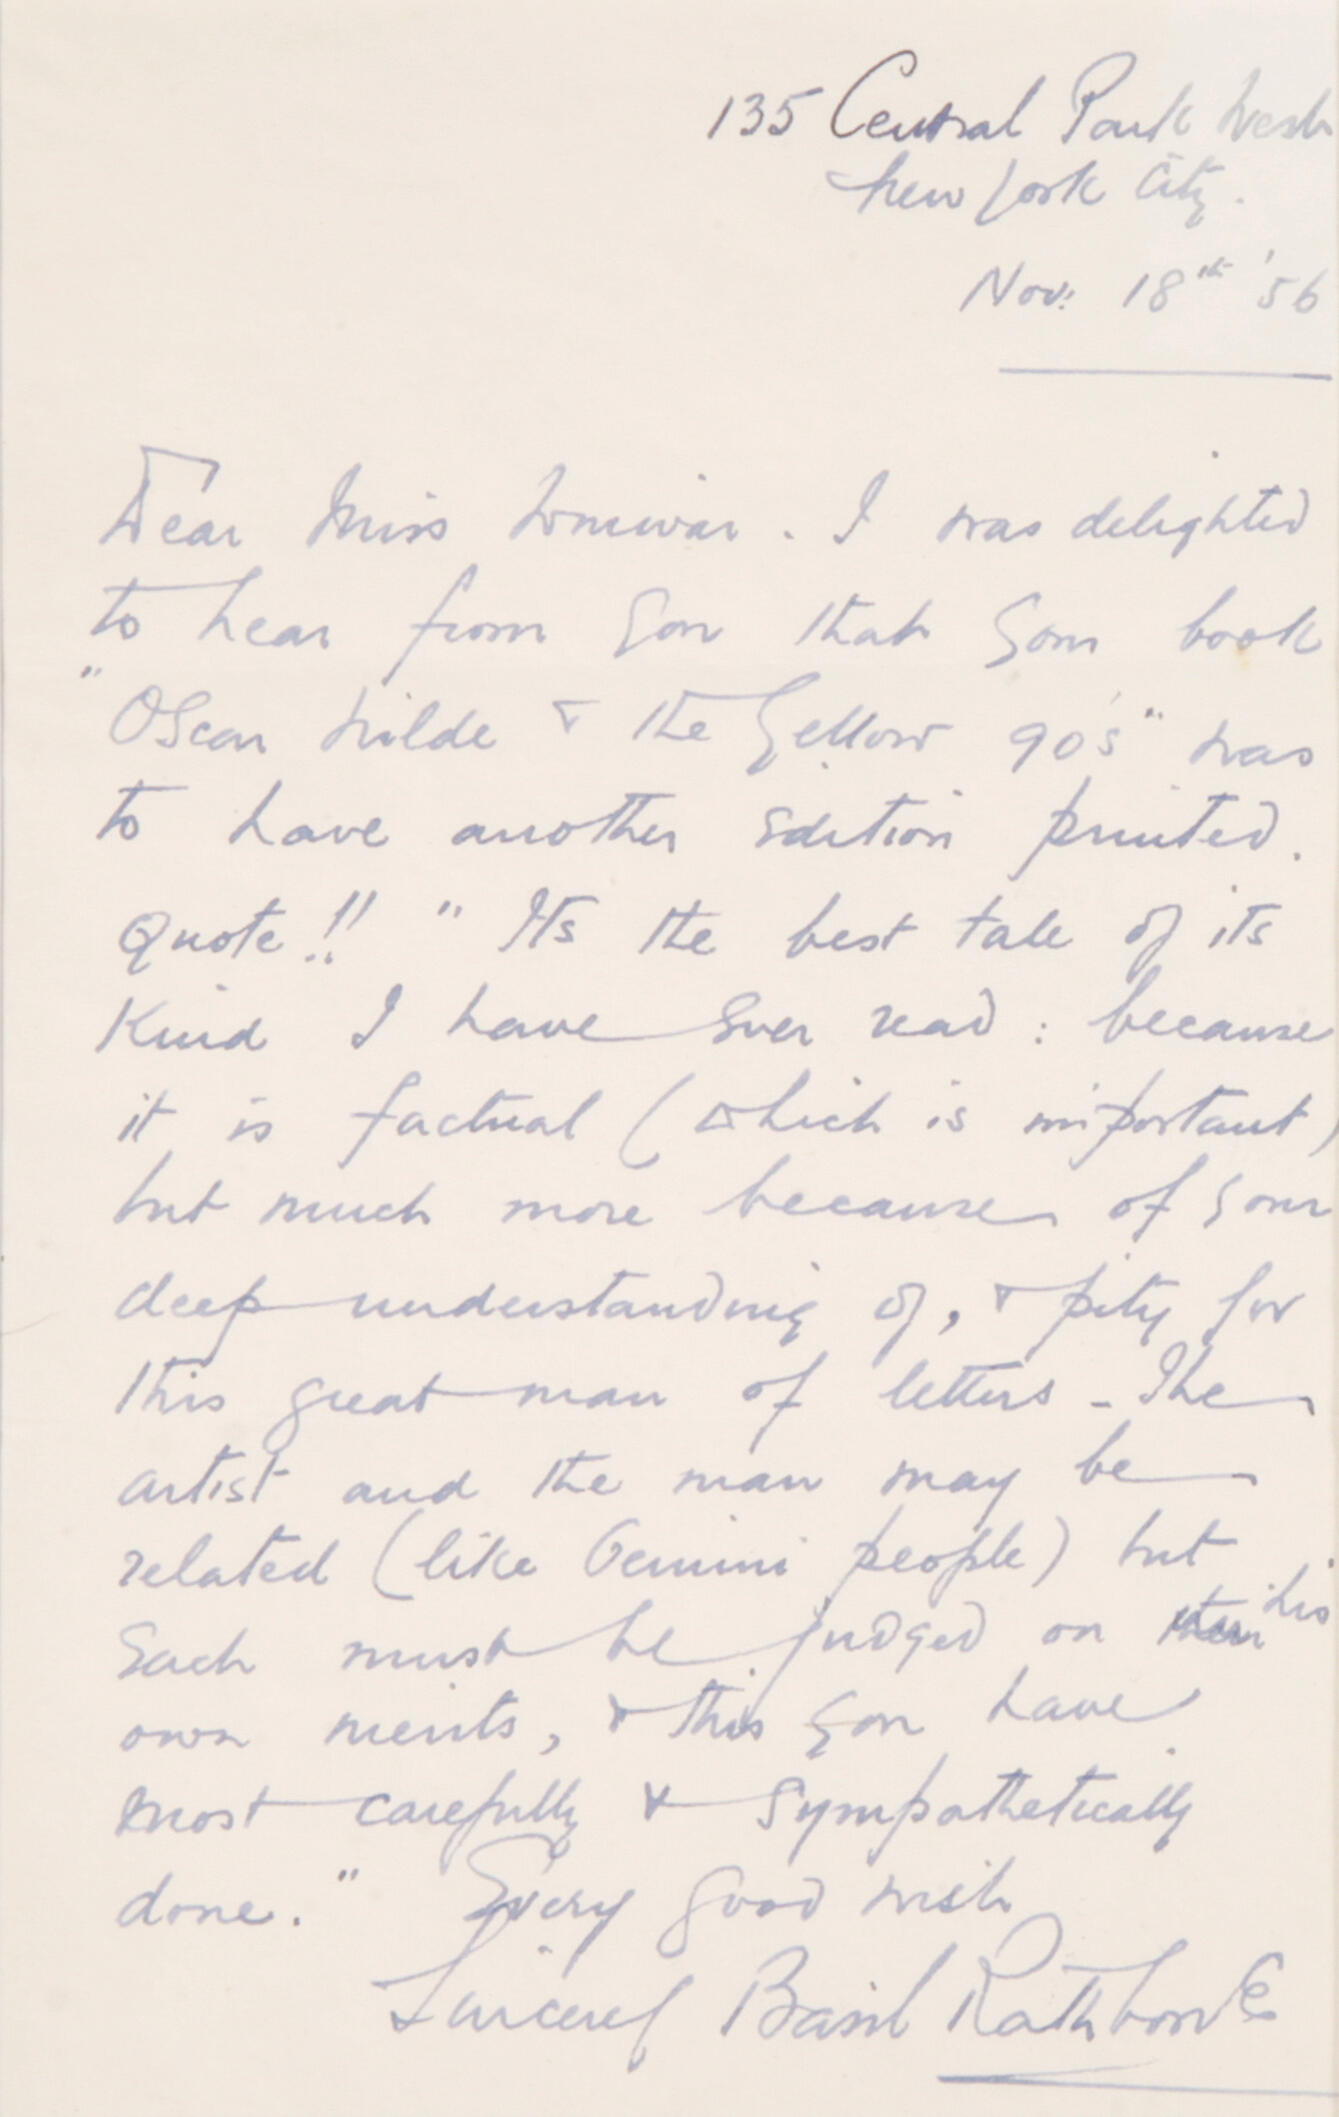 135 Central Park West
New York City.
Nov: 18th '56
Dear Miss Winwar. I was delighted
to hear from you that your book
"Oscar Wilde & the Yellow 90's" was
to have another edition printed.
Quote!! "Its the best tale of its
kind I have ever read: because
it is factual (which is important)
but much more because of your
deep understanding of, & pity for
this great man of letters - The
artist and the man may be
related (like Gemini people) but
each must be judged on their his
own merits, & this you have
most carefully & sympathetically
done." Every good wish
Sincerely Basil Rathbone